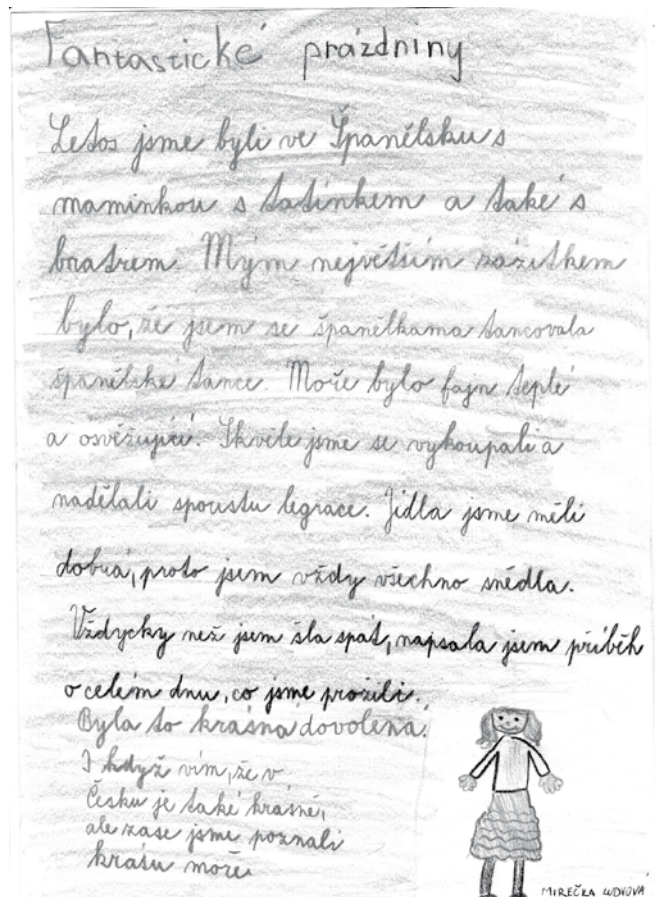 Fantastické prázdniny
Letos jsme byli ve Španělsku s
maminkou s tatínkem a také s
bratrem. Mým největším zážitkem
bylo, že jsem se španělkama tancovala
španělské tance. Moře bylo fajn teplé
a osvěžující. Skvěle jsme se vykoupali a
nadělali spoustu legrace. Jídla jsme měli
dobrá, proto jsem vždy všechno snědla.
Vždycky než jsem šla spát, napsala jsem příběh
o celém dnu, co jsme prožili.
Byla to krásná dovolená.
I když vím, že v
Česku je také krásně,
ale zase jsme poznali
krásu moře
MIREČKA